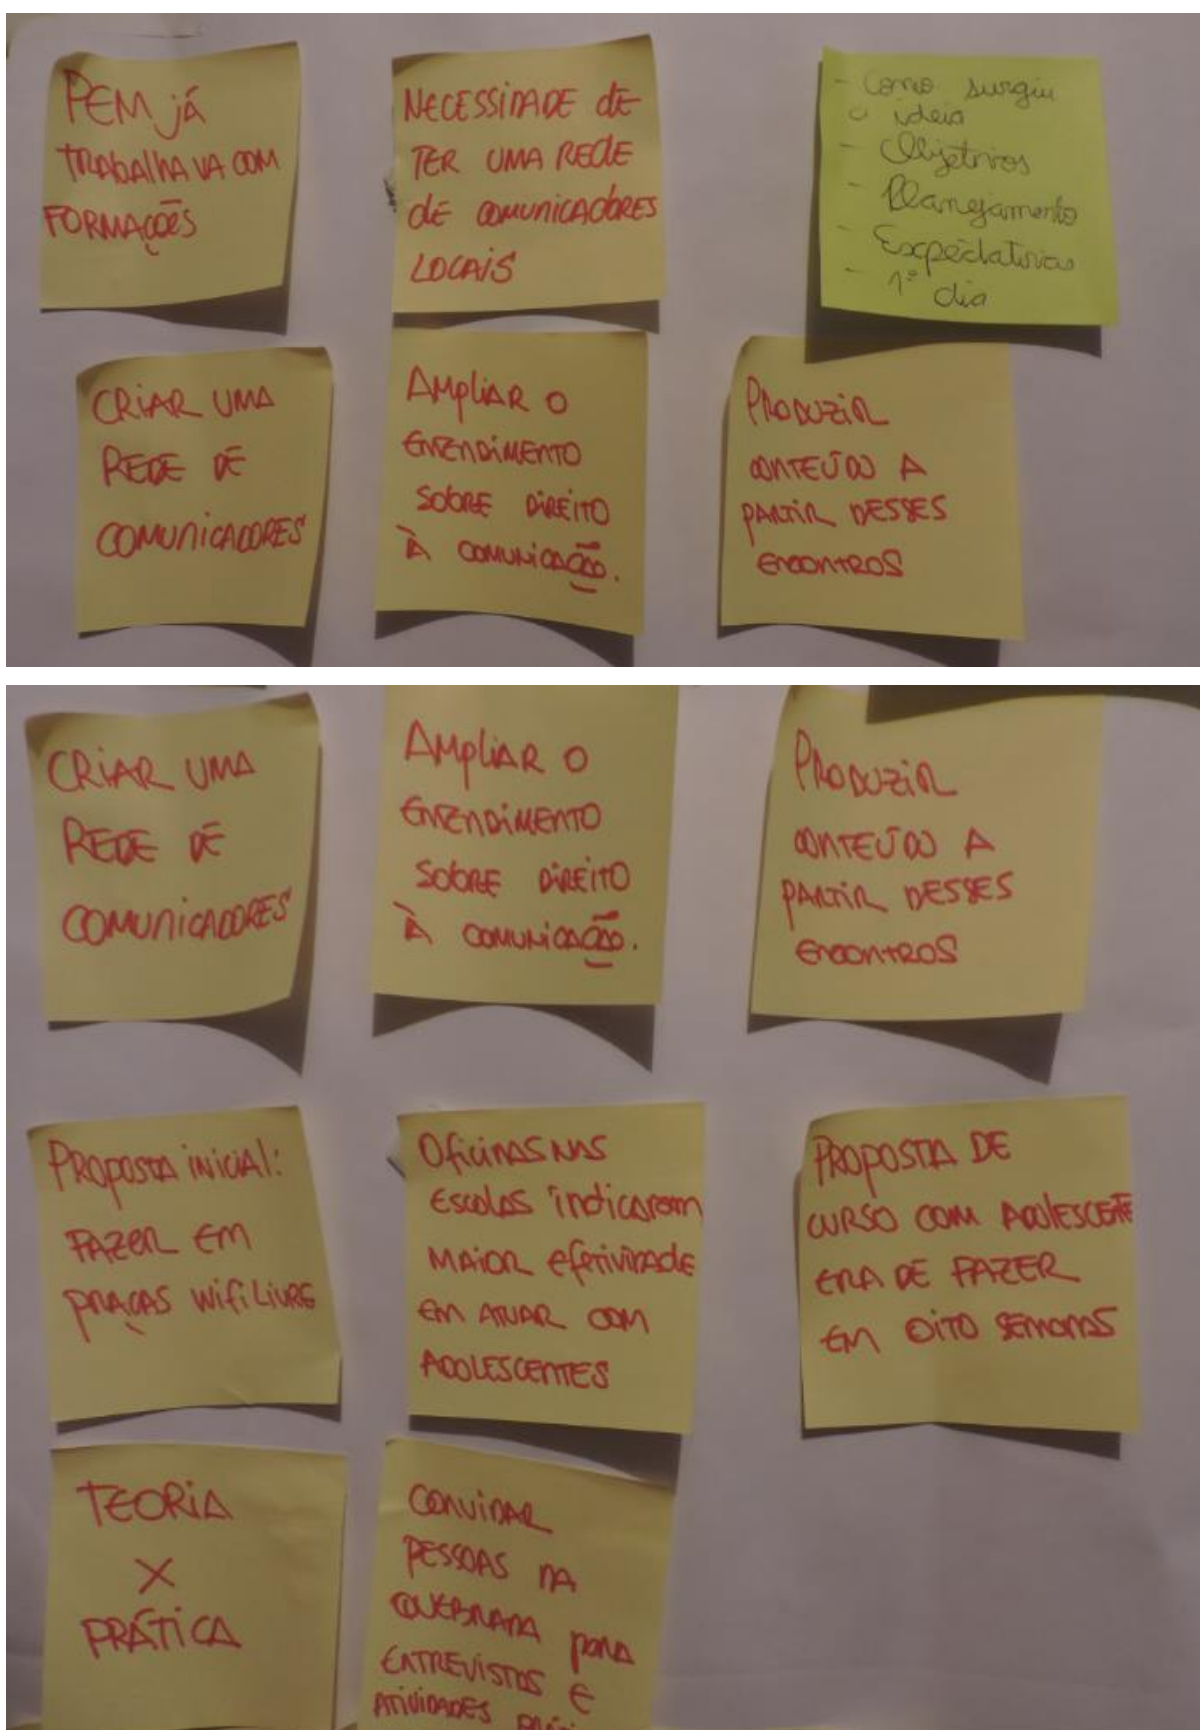 PEM já
TRABALHAVA COM
FORMAÇÕES
NECESSIDADE dE
TER UMA REDE
dE COMUNICADORES
LOCAIS
- Como surgiu
a ideia
- Objetivos
- Planejamento
- Expectativas
- 1º dia
CRIAR UMA
REDE DE
COMUNICADORES
AMpliAR O
ENTENDIMENTO
SOBRE DIREITO
À COMUNICAÇÃO.
PRODUZIR
CONTEÚDO A
PARTIR DESSES
ENCONTROS
CRIAR UMA
REDE DE
COMUNICADORES
AMpliAR O
ENTENDIMENTO
SOBRE DIREITO
À COMUNICAÇÃO.
PRODUZIR
CONTEÚDO A
PARTIR DESSES
ENCONTROS
PROPOSTA INICIAL:
FAZER EM
PRAÇAS WIFI LIVRE
OFICINAS NAS
ESCOLAS INDICARAM
MAIOR EFETIVIDADE
EM ATUAR COM
ADOLESCENTES
PROPOSTA DE
CURSO COM ADOLESCENTE
ERA DE FAZER
EM OITO SEMANAS
TEORIA
X
PRÁTICA
CONVIDAR
PESSOAS NA
QUEBRADA PARA
ENTREVISTAS E
ATIVIDADES